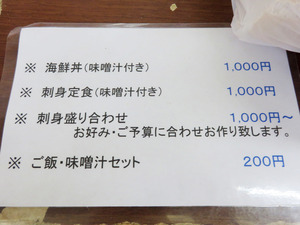 ※ 海鮮丼（味噌汁付き） 1,000円
※ 刺身定食（味噌汁付き） 1,000円
※ 刺身盛り合わせ 1,000円～
お好み・ご予算に合わせお作り致します。
※ ご飯・味噌汁セット 200円